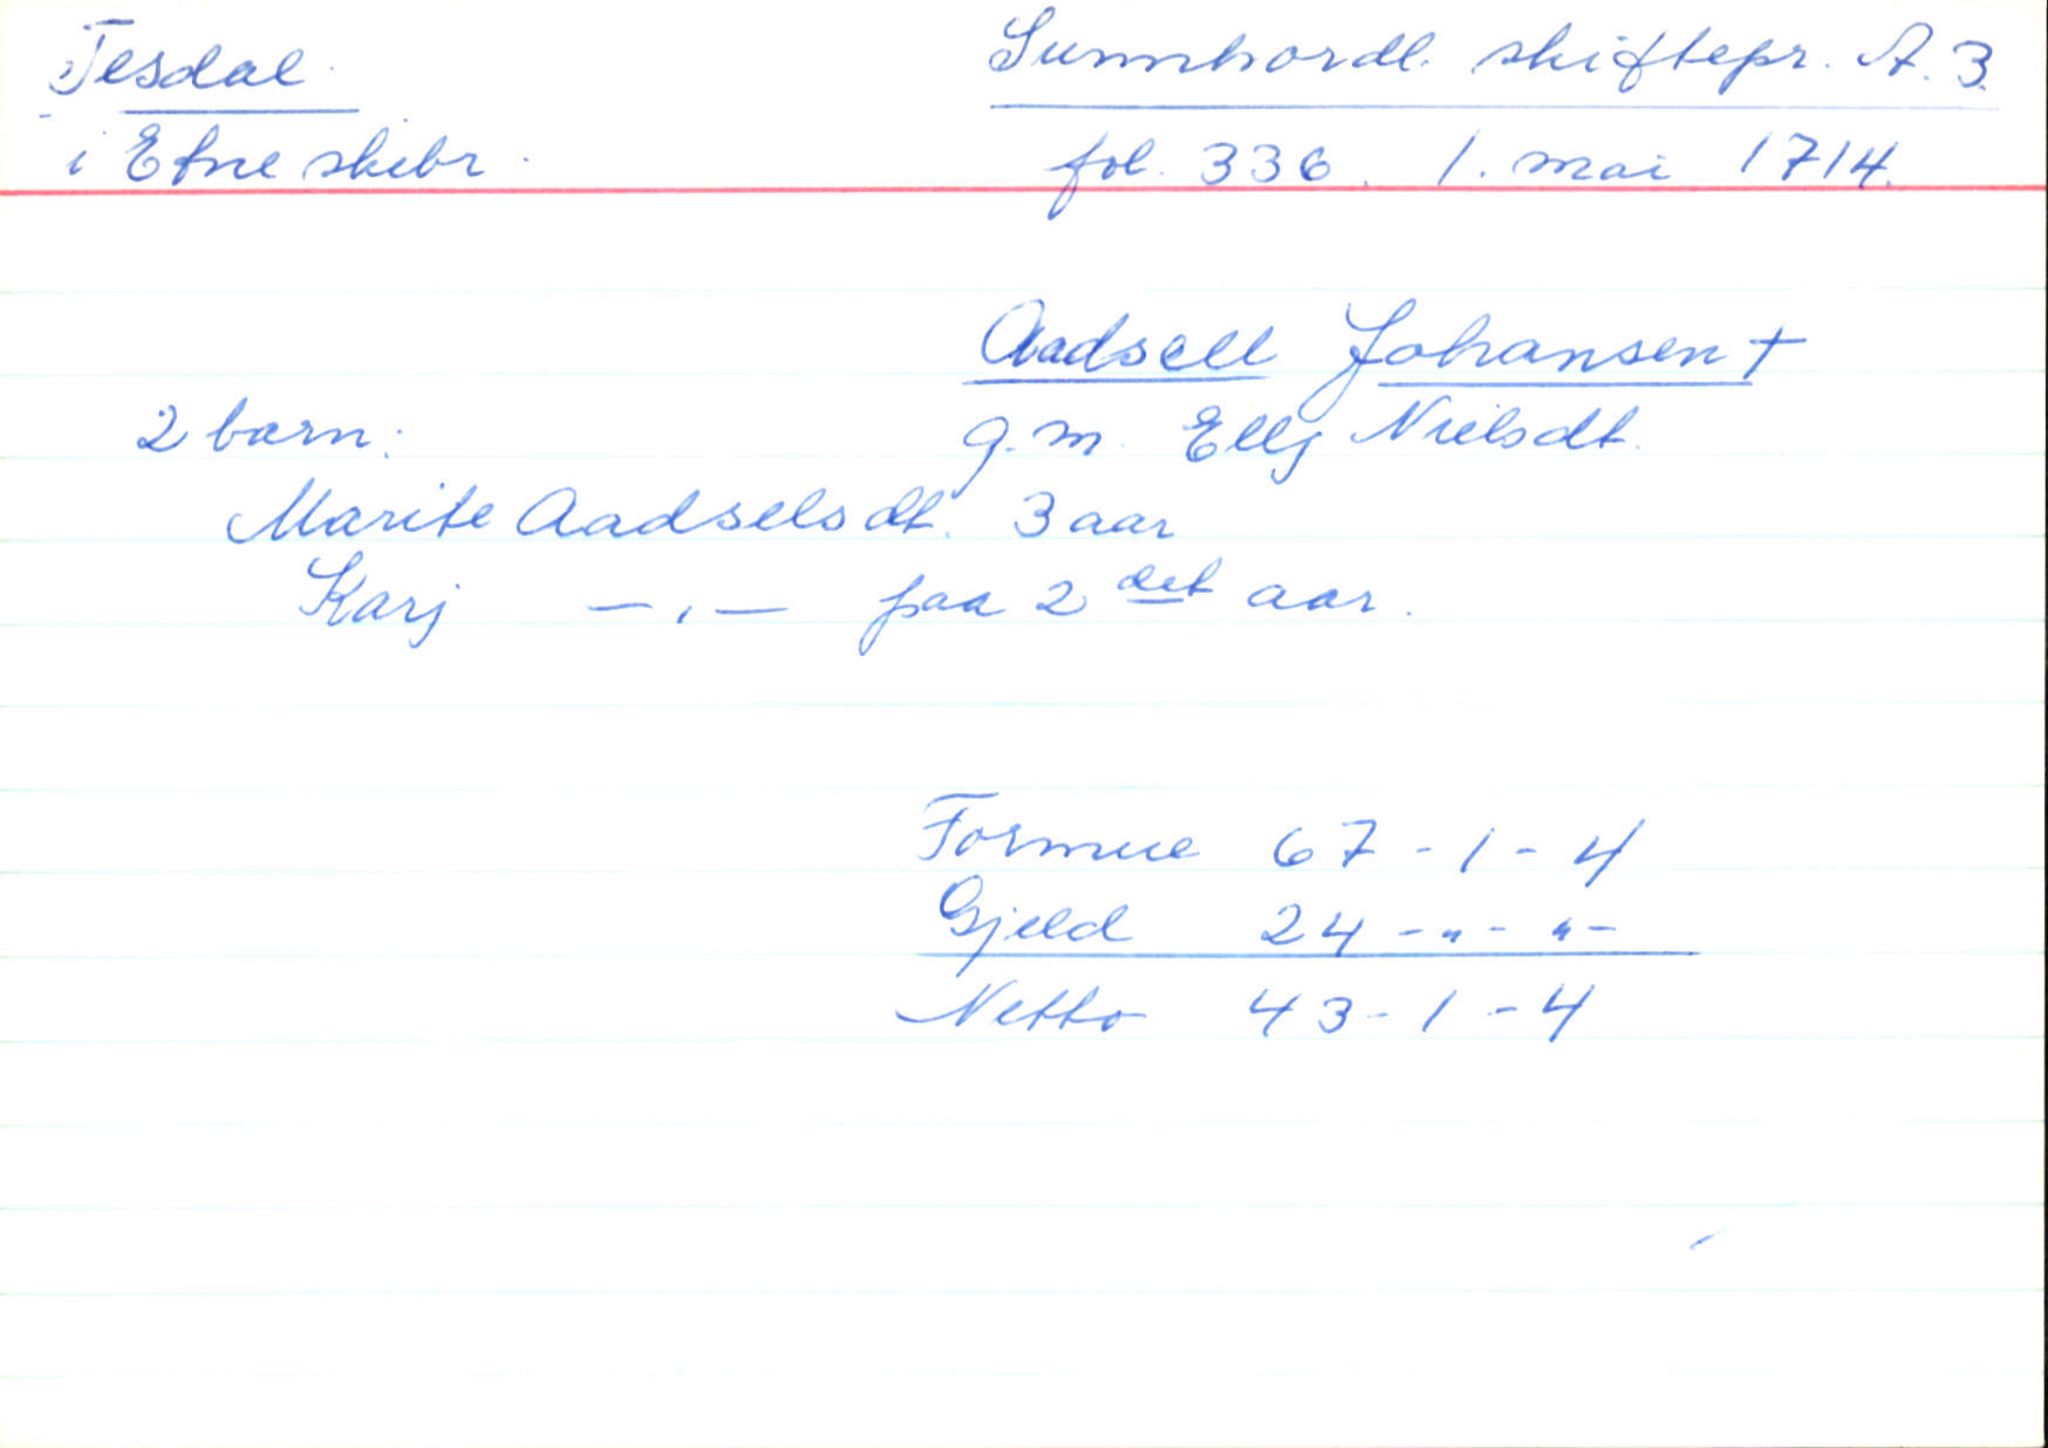 Tesdal
i Etne skibr.
Sunnhordl. skiftepr. A. 3.
fol. 336. 1. mai 1714.
Aadsell Johansen +
g.m. Ellj Nielsdt.
2 barn:
Marite Aadselsdt. 3 aar
Karj — " — paa 2 det aar.
Formue 67 - 1 - 4
Gjeld 24 - " - " -
Netto 43 - 1 - 4